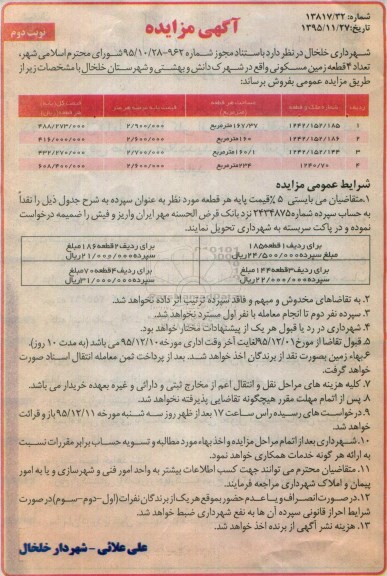 شماره: ۱۳۸۱۷/۳۲
تاریخ: ۱۳۹۵/۱۱/۲۷
آگهی مزایده
نوبت دوم
شهرداری خلخال در نظر دارد باستناد مجوز شماره ۹۶۲-۹۵/۱۰/۲۸ شورای محترم اسلامی شهر،
تعداد ۴ قطعه زمین مسکونی واقع در شهرک دانش و بهشتی و شهرستان خلخال با مشخصات زیر از
طریق مزایده عمومی بفروش برساند:
ردیف
۱ ۱۲۴۲/۱۵۲/۱۸۵ ۱۶۷/۳۷ مترمربع ۲/۹۰۰/۰۰۰ ۴۸۸/۲۷۳/۰۰۰
۲ ۱۲۴۲/۱۵۲/۱۸۶ ۱۶۰ مترمربع ۲/۶۰۰/۰۰۰ ۴۱۶/۰۰۰/۰۰۰
۳ ۱۲۴۲/۱۵۲/۱۴۴ ۱۶۰/۱ مترمربع ۲/۷۰۰/۰۰۰ ۴۳۲/۲۷۰/۰۰۰
۴ ۱۲۴۰/۷۰ ۲۳۴ مترمربع ۲/۶۰۰/۰۰۰ ۶۰۸/۴۰۰/۰۰۰
شرایط عمومی مزایده
۱. متقاضیان می بایستی ۵٪ قیمت پایه هر قطعه مورد نظر به عنوان سپرده به شرح جدول ذیل را نقداً
به حساب سپرده شماره ۲۴۳۴۸۷۵ نزد بانک قرض الحسنه مهر ایران واریز و فیش را ضمیمه درخواست
نموده و در پاکت سربسته به شهرداری تحویل نمایند.
برای ردیف ۱ قطعه ۱۸۵ مبلغ سپرده ۲۴/۵۰۰/۰۰۰ ریال
برای ردیف ۲ قطعه ۱۸۶ مبلغ سپرده ۲۱/۰۰۰/۰۰۰ ریال
برای ردیف ۳ قطعه ۱۴۴ مبلغ سپرده ۲۲/۰۰۰/۰۰۰ ریال
برای ردیف ۴ قطعه ۷۰ مبلغ سپرده ۳۱/۰۰۰/۰۰۰ ریال
۲. به تقاضاهای مخدوش و مبهم و فاقد سپرده ترتیب اثر داده نخواهد شد.
۳. سپرده نفر دوم تا انجام معامله با نفر اول مسترد نخواهد شد.
۴. شهرداری در رد یا قبول هر یک از پیشنهادات مختار خواهد بود.
۵. قبول تقاضا از مورخ ۹۵/۱۲/۰۱ لغایت آخر وقت اداری مورخه ۹۵/۱۲/۱۰ می باشد (به مدت ۱۰ روز).
۶. بهاء زمین بصورت نقد از برندگان اخذ خواهد شد. بعد از پرداخت ثمن معامله انتقال اسناد صورت
خواهد گرفت.
۷. کلیه هزینه های مراحل نقل و انتقال اعم از مخارج ثبتی و دارائی و غیره بعهده خریدار می باشد.
۸. پس از اتمام مهلت مقرر هیچگونه تقاضایی پذیرفته نخواهد شد.
۹. درخواست های رسیده راس ساعت ۱۷ بعد از ظهر روز سه شنبه مورخه ۹۵/۱۲/۱۱ باز و قرائت
خواهد شد.
۱۰. شهرداری بعد از اتمام مراحل مزایده و اخذ بهاء مورد مطالبه و تسویه حساب برابر مقررات نسبت
به ارائه هر گونه خدمات همکاری خواهد نمود.
۱۱. متقاضیان محترم می توانند جهت کسب اطلاعات بیشتر به واحد امور فنی و شهرسازی و یا به امور
پیمان و املاک شهرداری مراجعه فرمایند.
۱۲. در صورت انصراف و یا عدم حضور بموقع هر یک از برندگان نفرات (اول-دوم-سوم) در صورت
شرایط احراز قانونی سپرده آن ها به نفع شهرداری ضبط خواهد شد.
۱۳. هزینه نشر آگهی از برنده اخذ خواهد شد.
علی علائی - شهردار خلخال